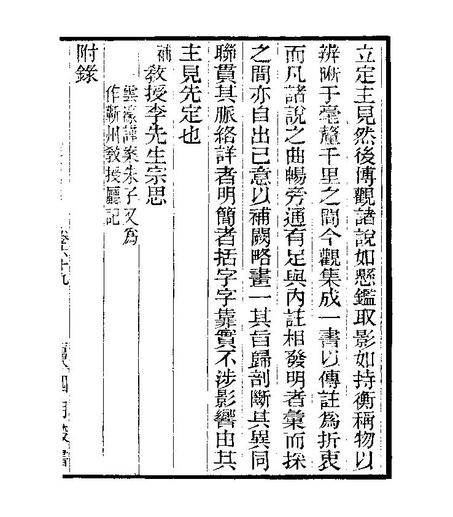 立定主見然後博觀諸說如懸鑑取影如持衡稱物以
辨晰于毫釐千里之間今觀集成一書以傳註爲折衷
而凡諸說之曲暢旁通有足與內註相發明者彙而採
之間亦自出己意以補闕略畫一其旨歸剖斷其異同
聯貫其脈絡詳者明簡者括字字靠實不涉影響由其
主見先定也
補教授李先生宗思
雲濠謹案朱子又爲
作蘄州敎授廳記
附錄